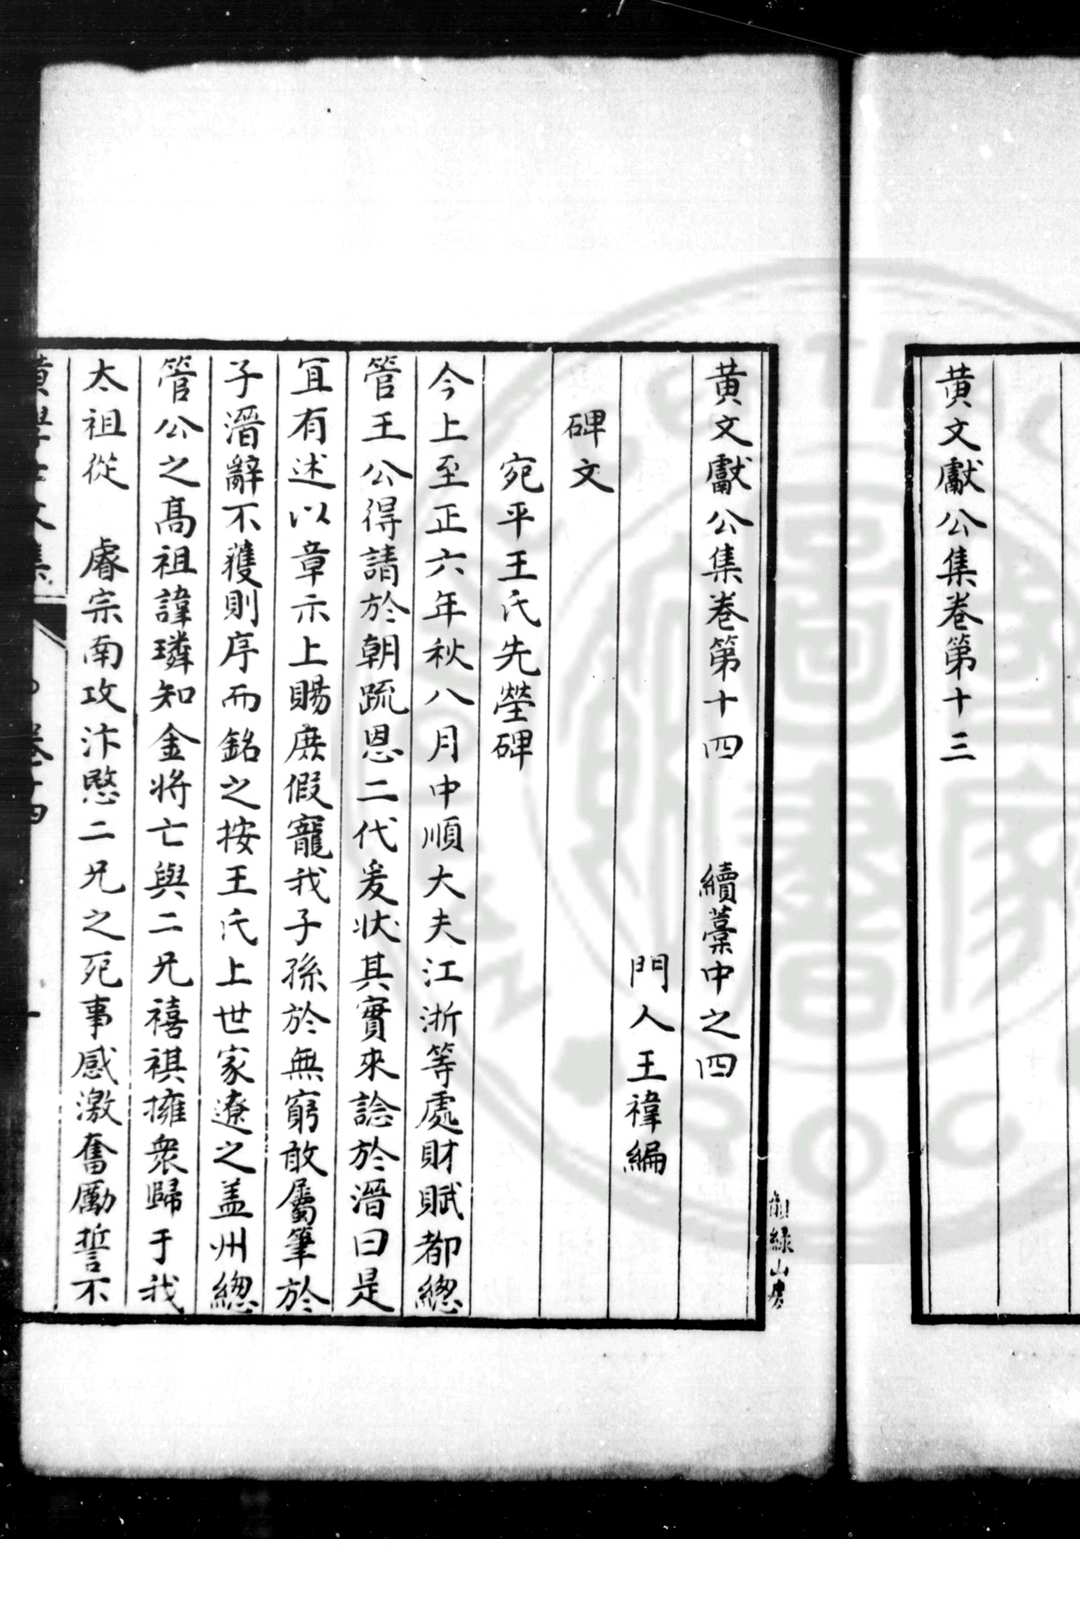 黃文獻公集卷第十三
黃文獻公集卷第十四　續藁中之四
門人王禕編
碑文
宛平王氏先塋碑
今上至正六年秋八月中順大夫江浙等處財賦都總
管王公得請於朝疏恩二代爰狀其實來諗於溍曰是
宜有述以章示上賜庶假寵我子孫於無窮敢屬筆於
子溍辭不獲則序而銘之按王氏上世家遼之盖州總
管公之高祖諱璘知金將亡與二兄禧祺擁衆歸于我
太祖從　睿宗南攻汴愍二兄之死事感激奮勵誓不
黃學士文集　卷十四　一
綠山房